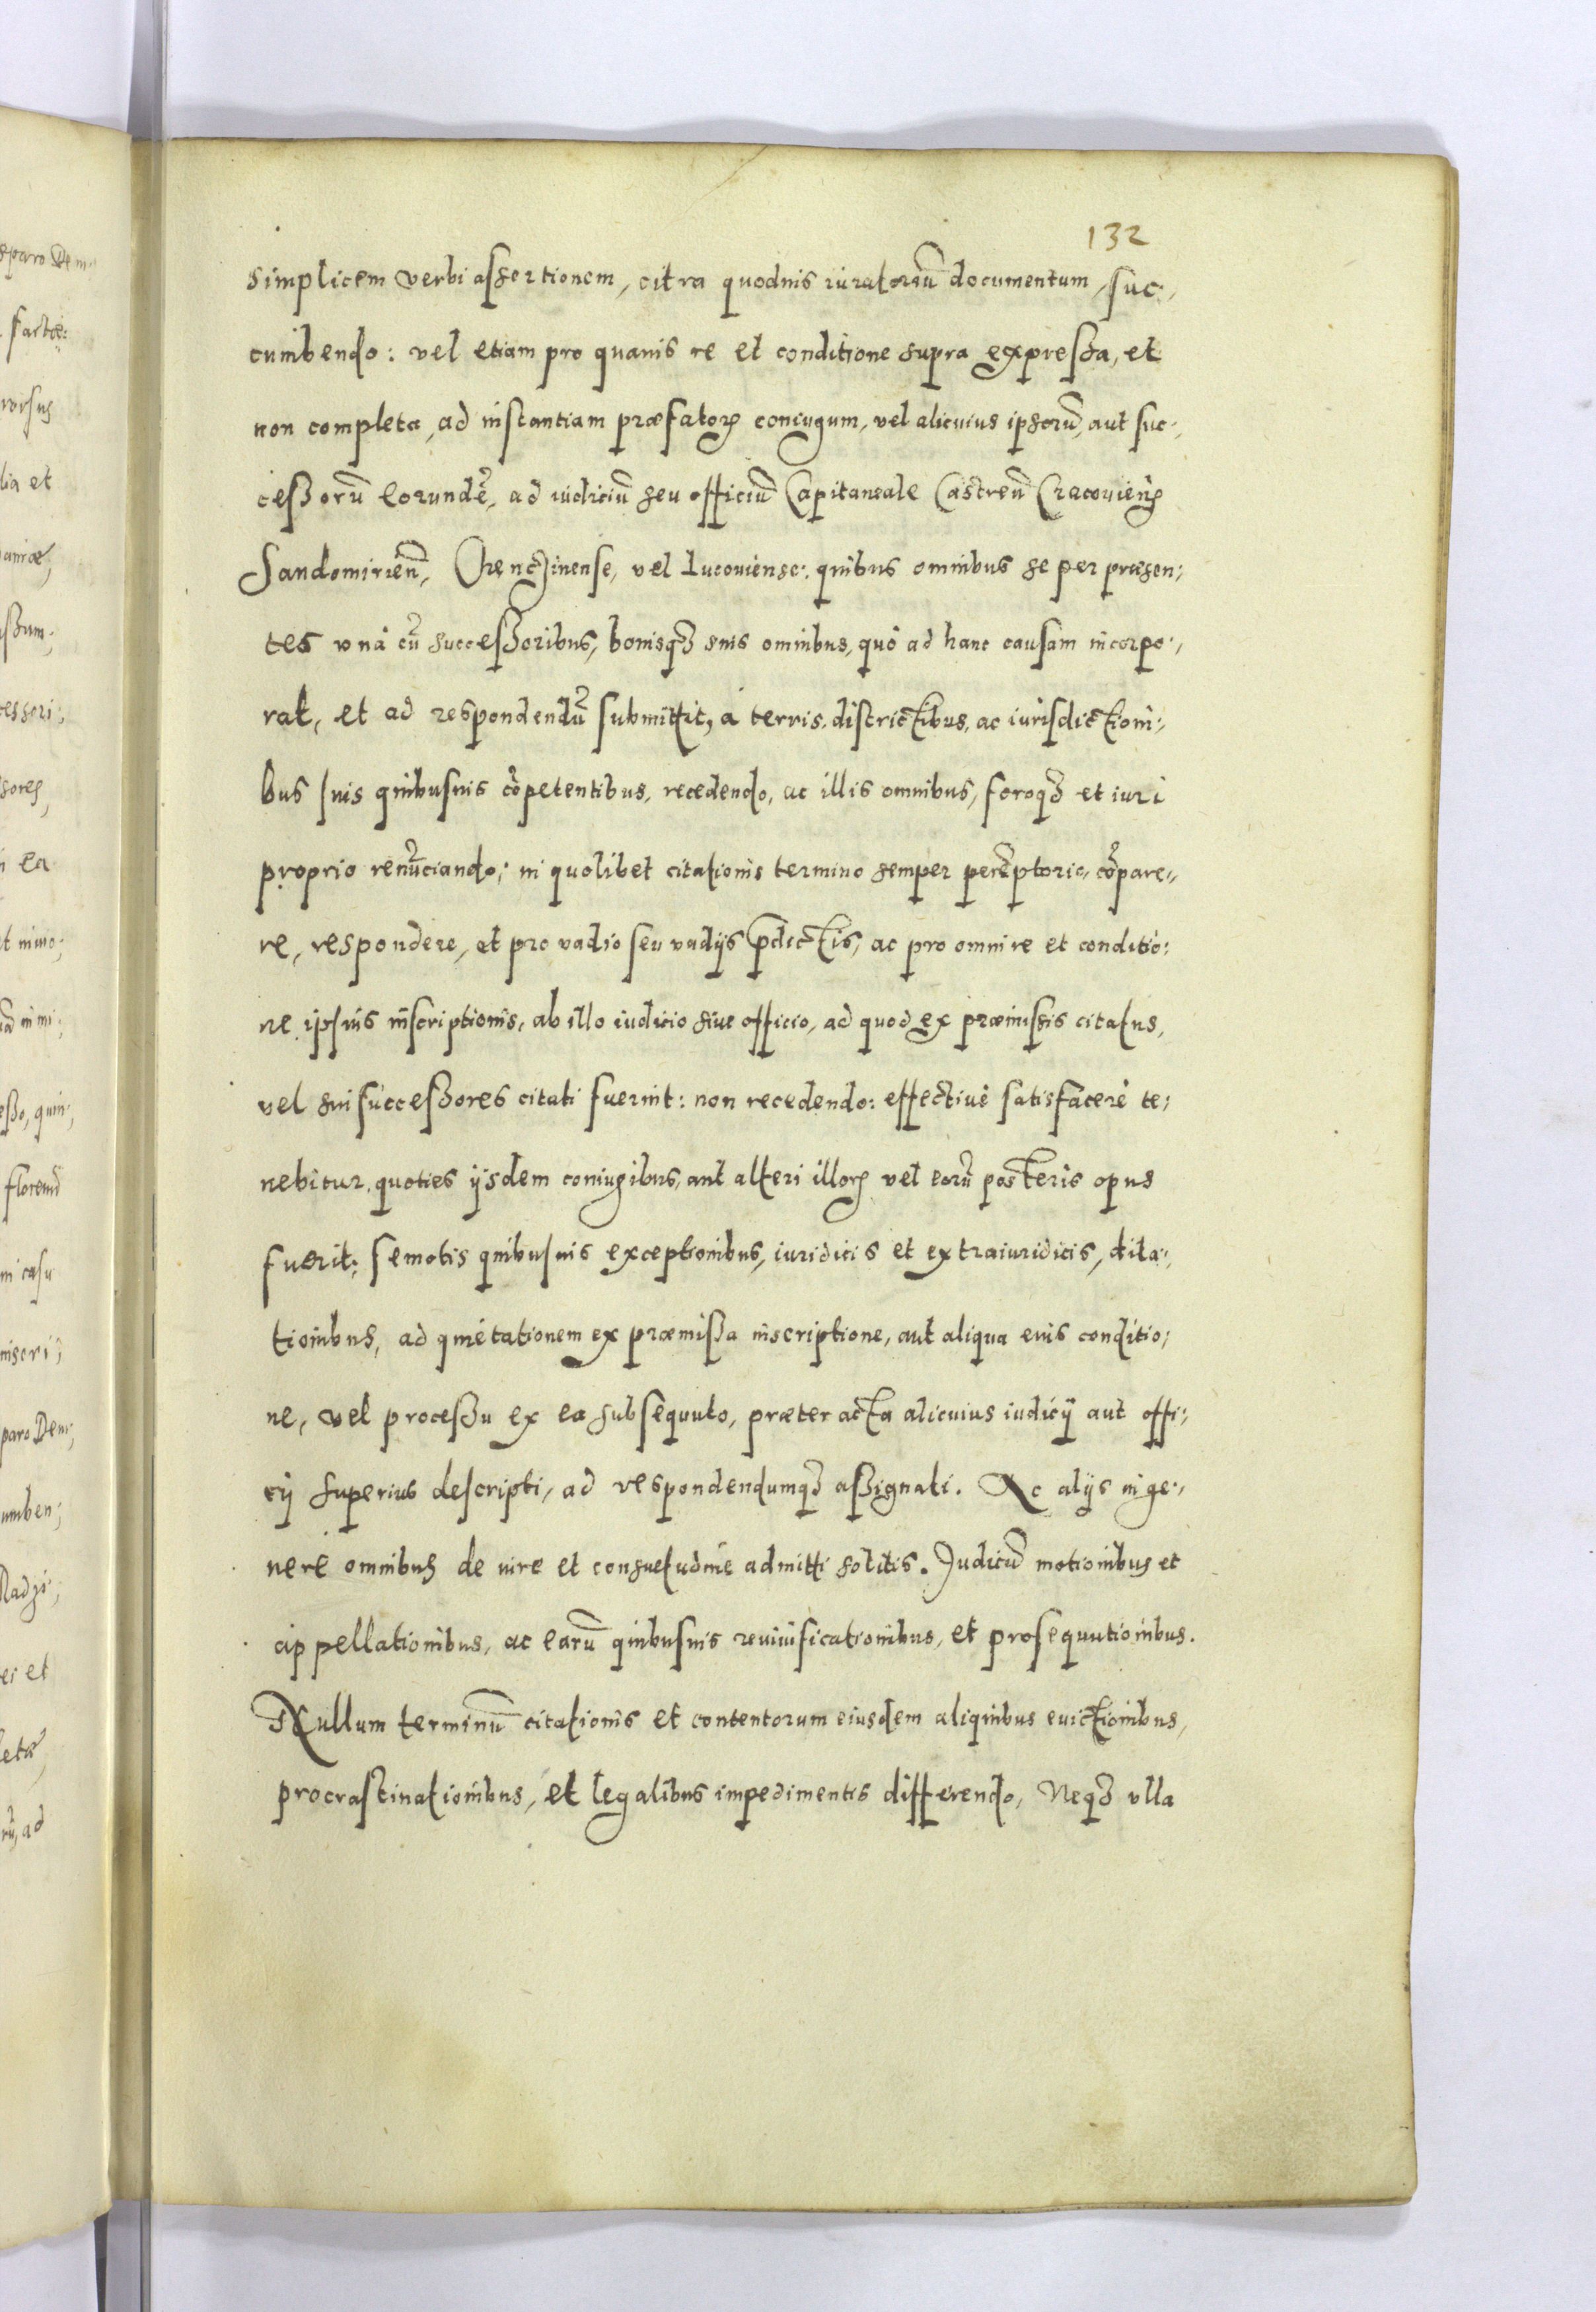 132
simplicem verbi assertionem, citra quoduis iuratoriũ documentum, suc:,
cumbendo: vel etiam pro quauis re et conditione supra expressa, et
non completa, ad instantiam præfatorꝫ coniugum, vel alicuius ipsorũ, aut suc:,
cessorũ eorundẽ, ad iudiciũ seu officiũ Capitaneale Castreñ Cracovieñ
Sandomirieñ, Chenczinense, vel Lucoviense: quibus omnibus se per præsen:
tes vnà cũ successoribus, bonisqꝫ suis omnibus, quò ad hanc causam incorpo:,
rat, et ad respondendũ submittit, à terris, districtibus, ac iurisdictioni:
bus suis quibusuis cõpetentibus, recedendo, ac illis omnibus, foroqꝫ et iuri
proprio renũciando; in quolibet citationis termino semper perẽptorio cõpare:,
re, respondere, et pro vadio seu vadijs p̃dictis, ac pro omni re et conditio:
ne ipsius inscriptionis, ab illo iudicio siue officio, ad quod ex præmissis citatus,
vel sui successores citati fuerint: non recedendo: effectiuè satisfacere te:
nebitur, quoties ijsdem coniugibus, aut alteri illorꝫ vel eorũ posteris opus
fuerit: semotis quibusuis exceptionibus, iuridicis et extraiuridicis, dila:,
tionibus, ad quietationem ex præmissa inscriptione, aut aliqua eius conditio:
ne, vel processu ex ea subsequuto, præter acta alicuius iudicij aut offi:,
cij superius descripti, ad respondendumqꝫ assignati. Ac alijs in ge:,
nere omnibus de iure et consuetudine admitti solitis. Judicũ motionibus et
appellationibus, ac earũ quibusuis reuiuificationibus, et prosequutionibus.
Nullum terminũ citationis et contentorum eiusdem aliquibus euictionibus,
procrastinationibus, et legalibus impedimentis differendo, Neqꝫ vlla